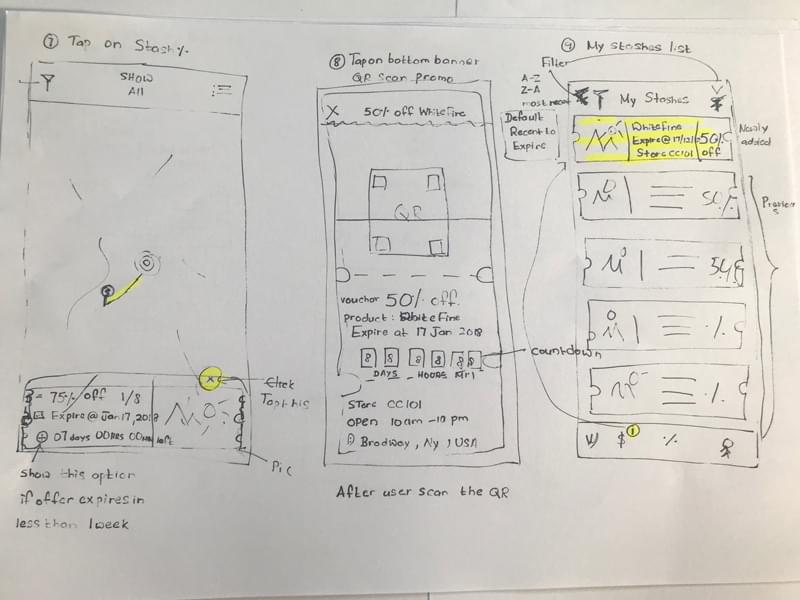 ⑦ Tap on Stashy.
SHOW
All
75% off 1/8
Expire@Jan 17, 2018
07 days 00HRS 00 left
Tap this
Pic
Show this option
if offer expires in
less than 1 week
⑧ Tap on bottom banner
QR scan promo
X 50% off WhiteFine
QR
vouchar 50% off.
product: WhiteFine
Expire at 17 Jan 2018
8 8 8 8 8 8
DAYS HOURS
countdown
Store CC101
OPEN 10am -10 pm
Brodway, Ny, USA
After user scan the QR
⑨ My stashes list
Filter
A-Z
Z-A
most recent
Default
Recent to
Expire
My Stashes
WhiteFine
Expire@ 17/12/
Store CC101
50%
off
Newly
added
50%
%
%
$ 1 %